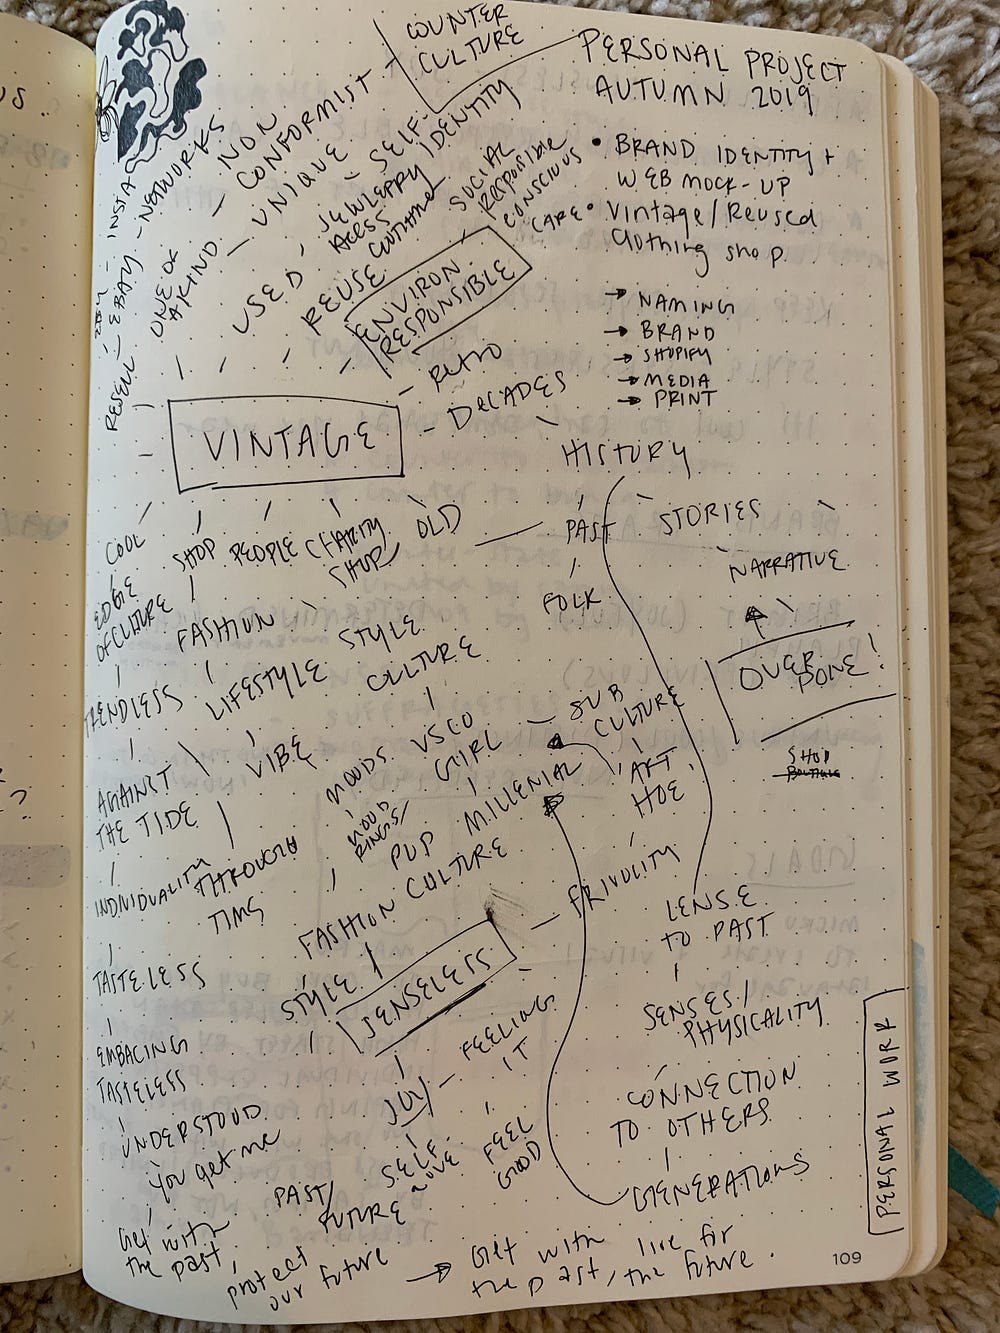 COUNTER
CULTURE
PERSONAL PROJECT
AUTUMN 2019
• BRAND IDENTITY +
WEB MOCK-UP
• Vintage/Reused
Clothing shop
→ NAMING
→ BRAND
→ SHOPIFY
→ MEDIA
→ PRINT
NON
CONFORMIST
UNIQUE
SELF-
IDENTITY
JEWLERRY
ACCS
SOCIAL
Responsible
CONSCIOUS
CARE
USED,
REUSE
ENVIRON-
RESPONSIBLE
ONE OF
A KIND
RESELL - EBAY - NETWORKS
INSTA
RETRO
DECADES
HISTORY
VINTAGE
COOL
SHOP
PEOPLE
CHARITY
SHOP
OLD
PAST
STORIES
NARRATIVE
FOLK
OVER
DONE!
SHOP
EDGE
OF CULTURE
FASHION
STYLE
LIFESTYLE
CULTURE
TRENDLESS
VIBE
MOODS
VSCO
GIRL
SUB
CULTURE
ART
HOE
MILLENIAL
AGAINST
THE TIDE
MOOD
RINGS/
POP
CULTURE
FASHION
INDIVIDUALITY
THROUGH
TIME
FRIVOLITY
LENSE
TO PAST
TASTELESS
STYLE
SENSELESS
SENSES/
PHYSICALITY
EMBACING
TASTELESS
JOY
FEELING
IT
CONNECTION
TO OTHERS
UNDERSTOOD
You get me
SELF
LOVE
FEEL
GOOD
GENERATIONS
PAST/
FUTURE
Get with
the past,
protect
our future
→ Get with
the past, live for
the future.
PERSONAL WORK
109